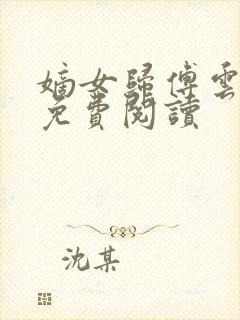 嫡女歸傅雲
免費閱讀
沈某